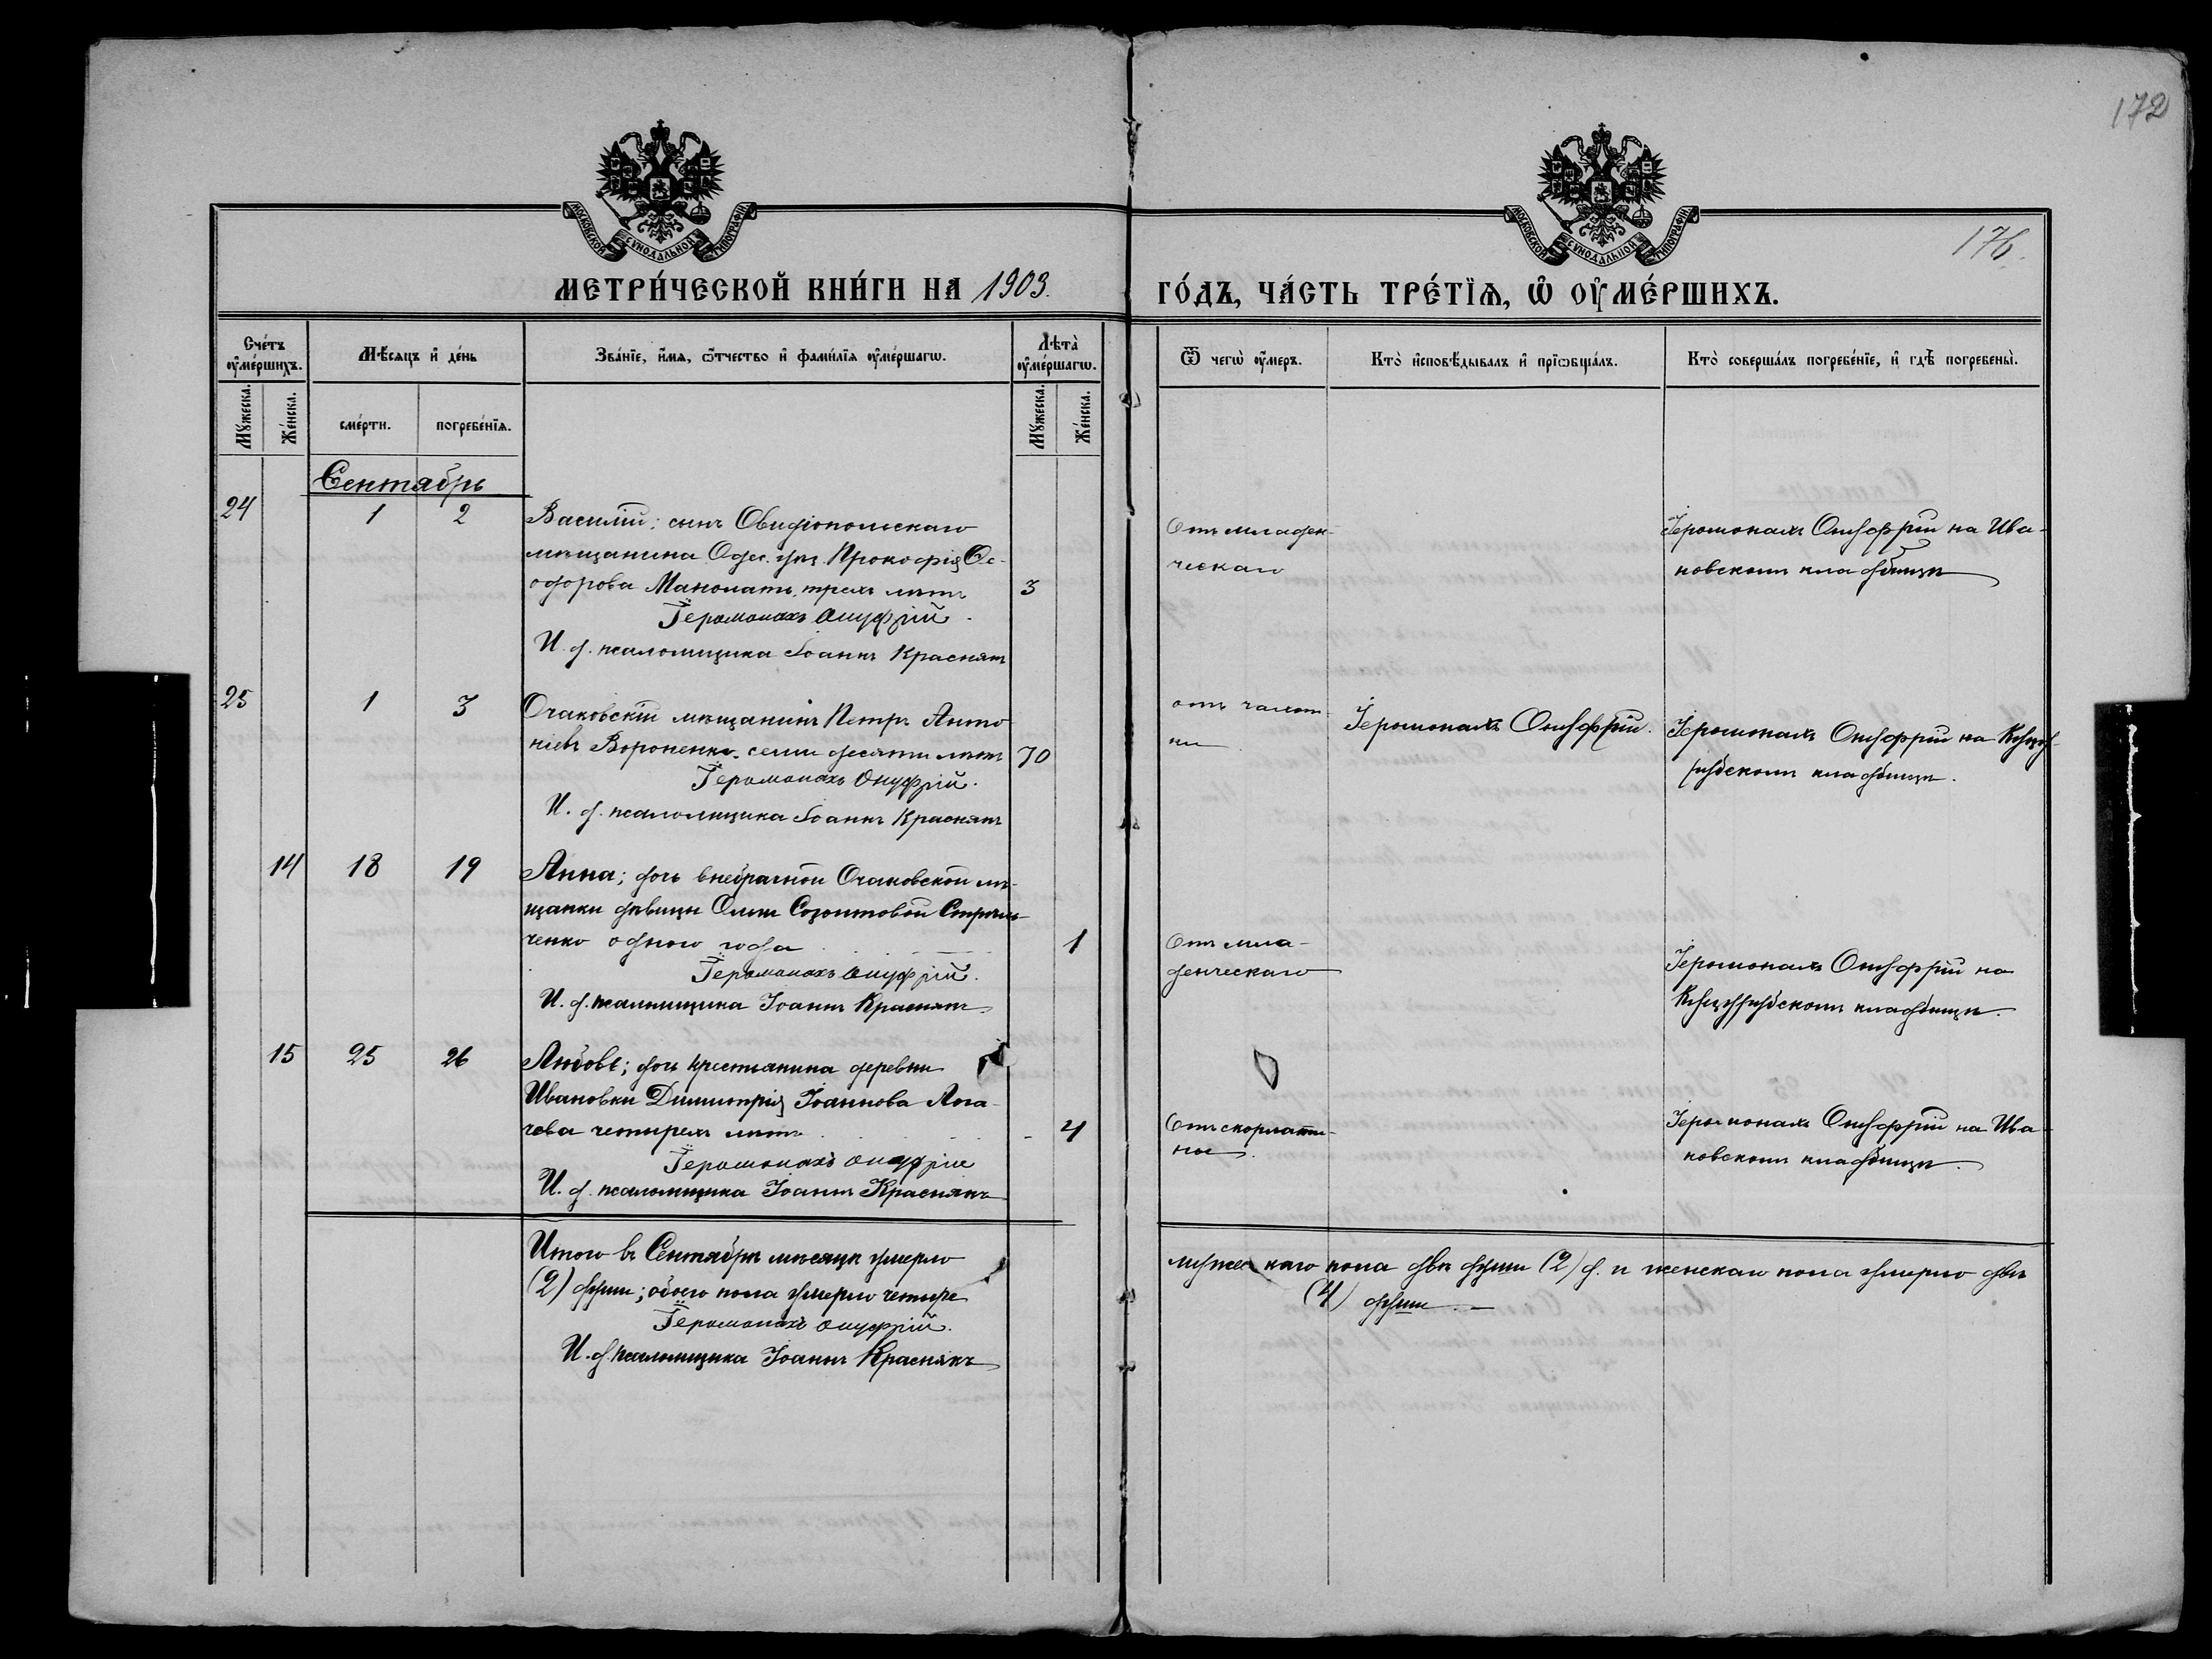 172
176.
МОСКОВСКОЙ СѴНОДАЛЬНОЙ ТИПОГРАФІИ
МОСКОВСКОЙ СѴНОДАЛЬНОЙ ТИПОГРАФІИ
МЕТРИ́ЧЕСКОЙ КНИ́ГИ НА 1903. ГО́ДЪ, ЧА́СТЬ ТРЕ́ТЇѦ, Ѡ҆ ОУ҆МЕ́РШИХЪ.
Сче́тъ оу҆ме́ршихъ.
Мꙋ́жеска. Же́нска.
Мѣ́сяцъ и҆ де́нь
сме́рти. погребе́нїѧ.
Зва́нїе, и҆́мѧ, ѻ҆́тчество и҆ фами́лїѧ оу҆ме́ршагѡ.
Лѣ́та оу҆ме́ршагѡ.
Мꙋ́жеска. Же́нска.
Ѿ чегѡ̀ оу҆́меръ.
Кто̀ и҆сповѣ́дывалъ и҆ прїѡбща́лъ.
Кто̀ соверша́лъ погребе́нїе, и҆ гдѣ̀ погребены̀.
Сентябрь
24 1 2 Василій; сынъ Овидіопольскаго
мѣщанина Одес. уѣз. Прокофія Ѳе-
одорова Маномать, трехъ лѣтъ 3
Іеромонахъ Онуфрій.
И. д. псаломщика Іоаннъ Краснякъ
Отъ младен-
ческаго
Іеромонахъ Онуфрій на Ива-
новскомъ кладбищѣ
25 1 3 Очаковскій мѣщанинъ Петръ Анто-
ніевъ Вороненко, семи десяти лѣтъ 70
Іеромонахъ Онуфрій.
И. д. псаломщика Іоаннъ Краснякъ
отъ чахот-
ки
Іеромонахъ Онуфрій.
Іеромонахъ Онуфрій на Куцу-
рубскомъ кладбищѣ.
14 18 19 Анна; дочь внебрачной Очаковской мѣ-
щанки дѣвицы Ольги Созонтовой
ченко одного года 1
Іеромонахъ Онуфрій.
И. д. псаломщика Іоаннъ Краснякъ
Отъ мла-
денческаго
Іеромонахъ Онуфрій на
Куцурубскомъ кладбищѣ.
15 25 26 Любовь; дочь крестьянина деревни
Ивановки Димитрія Іоаннова Лога-
чева четырехъ лѣтъ 4
Іеромонахъ Онуфрій
И. д. псаломщика Іоаннъ Краснякъ
Отъ скорлати-
ны.
Іеромонахъ Онуфрій на Ива-
новскомъ кладбищѣ.
Итого въ Сентябрѣ мѣсяцѣ умерло мужескаго пола двѣ души (2) д. и женскаго пола умерло двѣ
(2) души; обоего пола умерло четыре (4) души.
Іеромонахъ Онуфрій.
И. д. псаломщика Іоаннъ Краснякъ